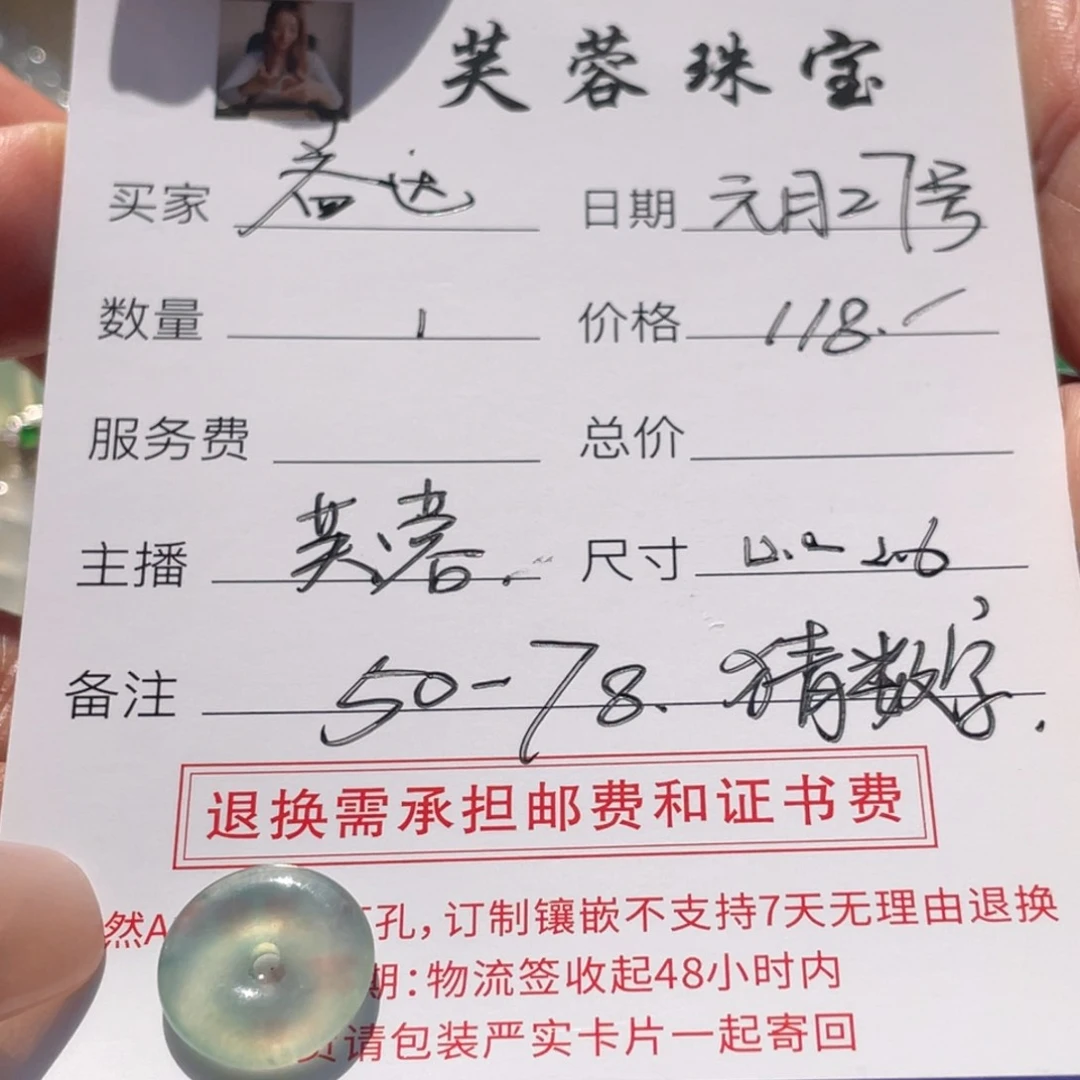 芙蓉珠宝
买家 春达 日期 元月27号
数量 1 价格 118.
服务费 总价
主播 芙蓉. 尺寸 2.6
备注 50-78. 猜数字.
退换需承担邮费和证书费
然A 孔,订制镶嵌不支持7天无理由退换
期:物流签收起48小时内
货请包装严实卡片一起寄回